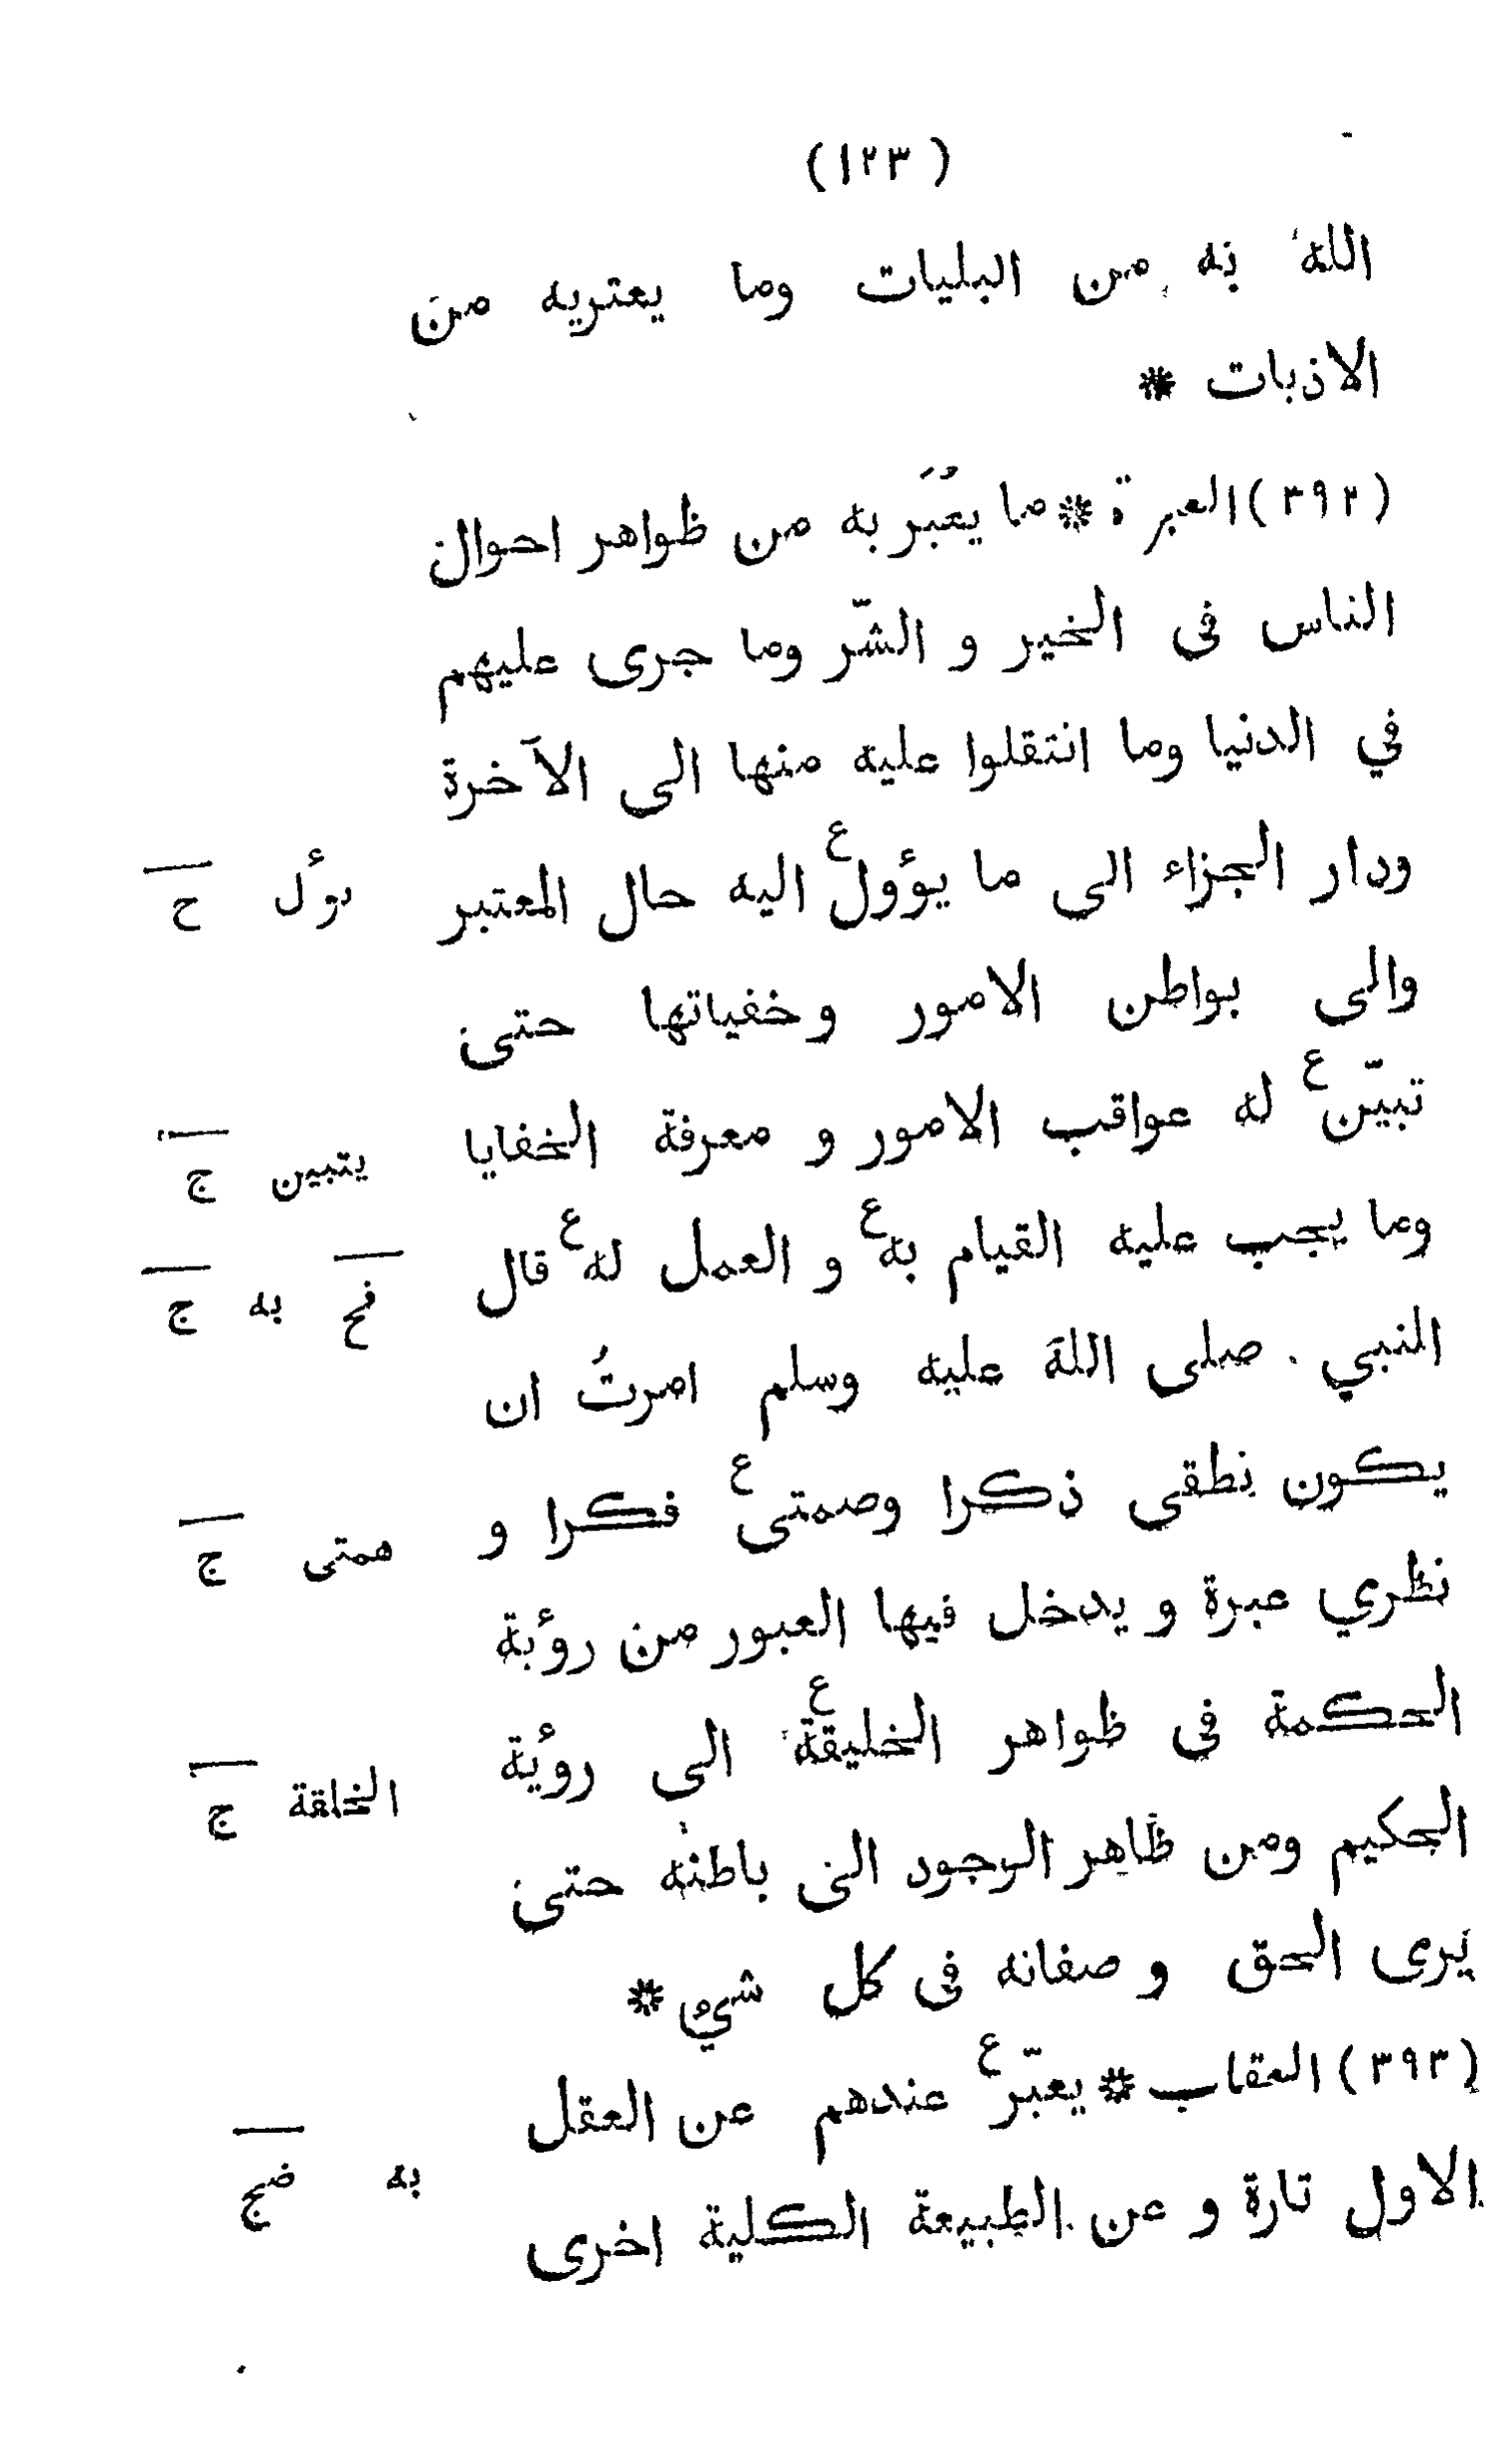 (١٢٣)
الله به من البليات وما يعتريه من
الاذيات *
(٣٩٢) العبرة * ما يعُبَر به من ظواهر احوال
الناس في الخير و الشّر وما جرى عليهم
في الدنيا وما انتقلوا عليه منها الى الآخرة
ودار الجزاء الى ما يؤول ع اليه حال المعتبر يؤل ح
والى بواطن الامور وخفياتها حتى
تبيّن ع له عواقب الامور و معرفة الخفايا يتبين ج
وما يجب عليه القيام به ع و العمل له ع قال فح به ج
النبي صلى الله عليه وسلم امرتُ ان
يكون نطقى ذكرا وصمتى ع فكرا و همتى ج
نظري عبرة و يدخل فيها العبور من رؤية
الحكمة فى ظواهر الخليقة ع الى روئية الخلقة ج
الحكيم ومن ظاهر الوجود الى باطنه حتى
يرى الحق و صفاته فى كل شيء *
(٣٩٣) العقاب * يعبّر ع عندهم عن العقل
الاول تارة و عن الطبيعة الكلية اخرى به ضج